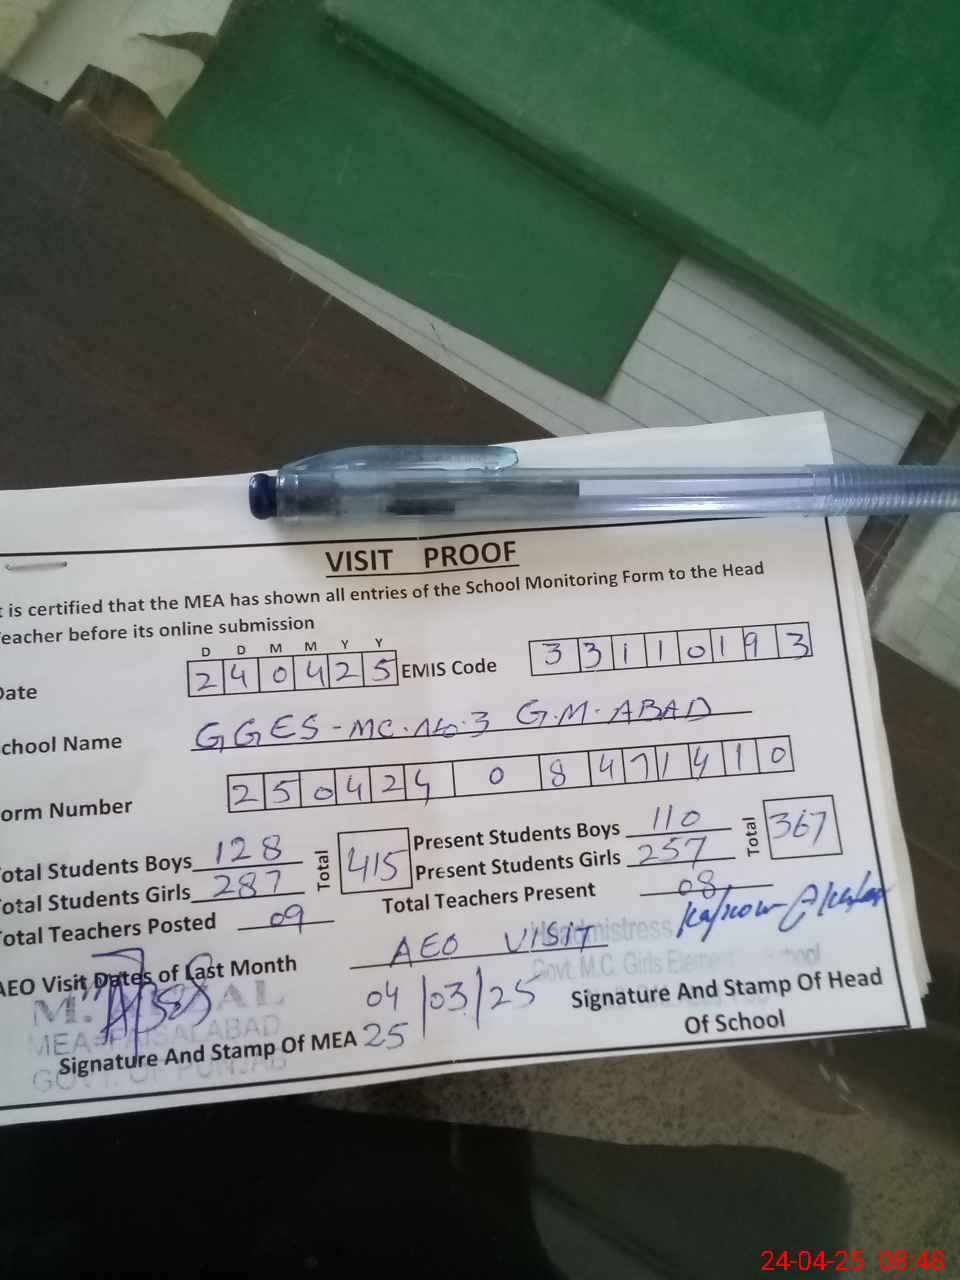 VISIT PROOF
t is certified that the MEA has shown all entries of the School Monitoring Form to the Head
eacher before its online submission
D D M M Y Y
Date 2 4 0 4 2 5 EMIS Code 3 3 1 1 0 1 9 3
chool Name GGES-MC.No.3 G.M.ABAD
orm Number 2 5 0 4 2 4 0 8 4 7 1 4 1 0
otal Students Boys 128 Total 415 Present Students Boys 110 Total 367
otal Students Girls 287 Present Students Girls 257
otal Teachers Posted 09 Total Teachers Present 08
AEO Visit Dates of Last Month AEO VISIT
Headmistress
Govt. M.C. Girls School
04/03/25 Signature And Stamp Of Head
Of School
25
MEA FAISALABAD
Signature And Stamp Of MEA
GOVT. OF PUNJAB
24-04-25 08:48